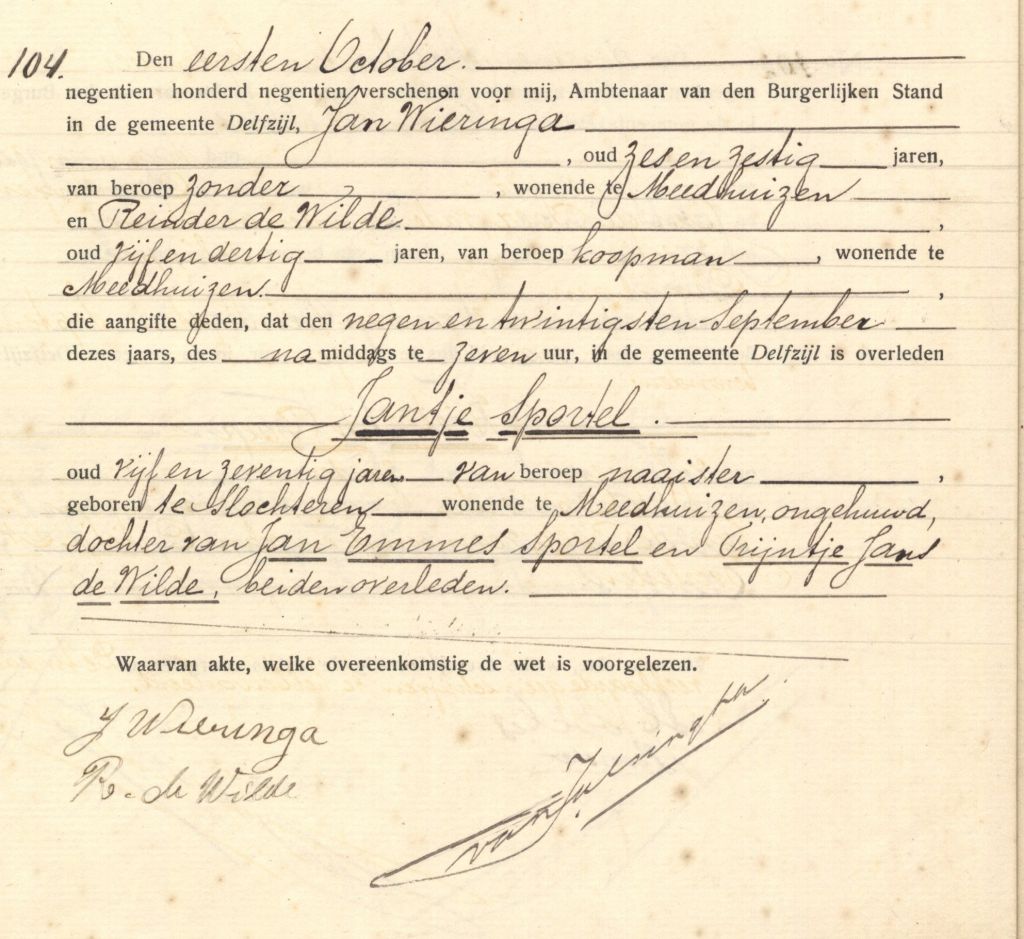 104. Den eersten October.
negentien honderd negentien verschenen voor mij, Ambtenaar van den Burgerlijken Stand
in de gemeente Delfzijl, Jan Wieringa
, oud zes en zestig jaren,
van beroep zonder, wonende te Meedhuizen
en Reinder de Wilde,
oud vijf en dertig jaren, van beroep koopman, wonende te
Meedhuizen.,
die aangifte deden, dat den negen en twintigsten September
dezes jaars, des na middags te zeven uur, in de gemeente Delfzijl is overleden
Jantje Sportel.
oud vijf en zeventig jaren van beroep naaister,
geboren te Slochteren wonende te Meedhuizen, ongehuwd,
dochter van Jan Emmes Sportel en Trijntje Jans
de Wilde, beiden overleden.
Waarvan akte, welke overeenkomstig de wet is voorgelezen.
J Wieringa
R. de Wilde
van